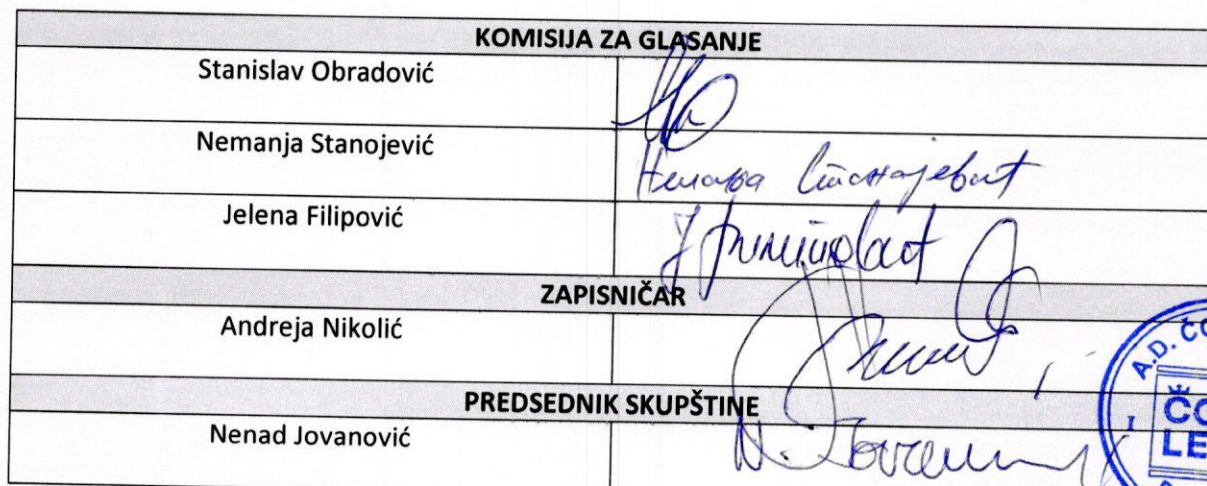 KOMISIJA ZA GLASANJE
Stanislav Obradović
Nemanja Stanojević
Немања Станојевић
Jelena Filipović
Ј Филиповић
ZAPISNIČAR
Andreja Nikolić
PREDSEDNIK SKUPŠTINE
Nenad Jovanović
N. Jovanović
A.D. ČO
ČO
LE